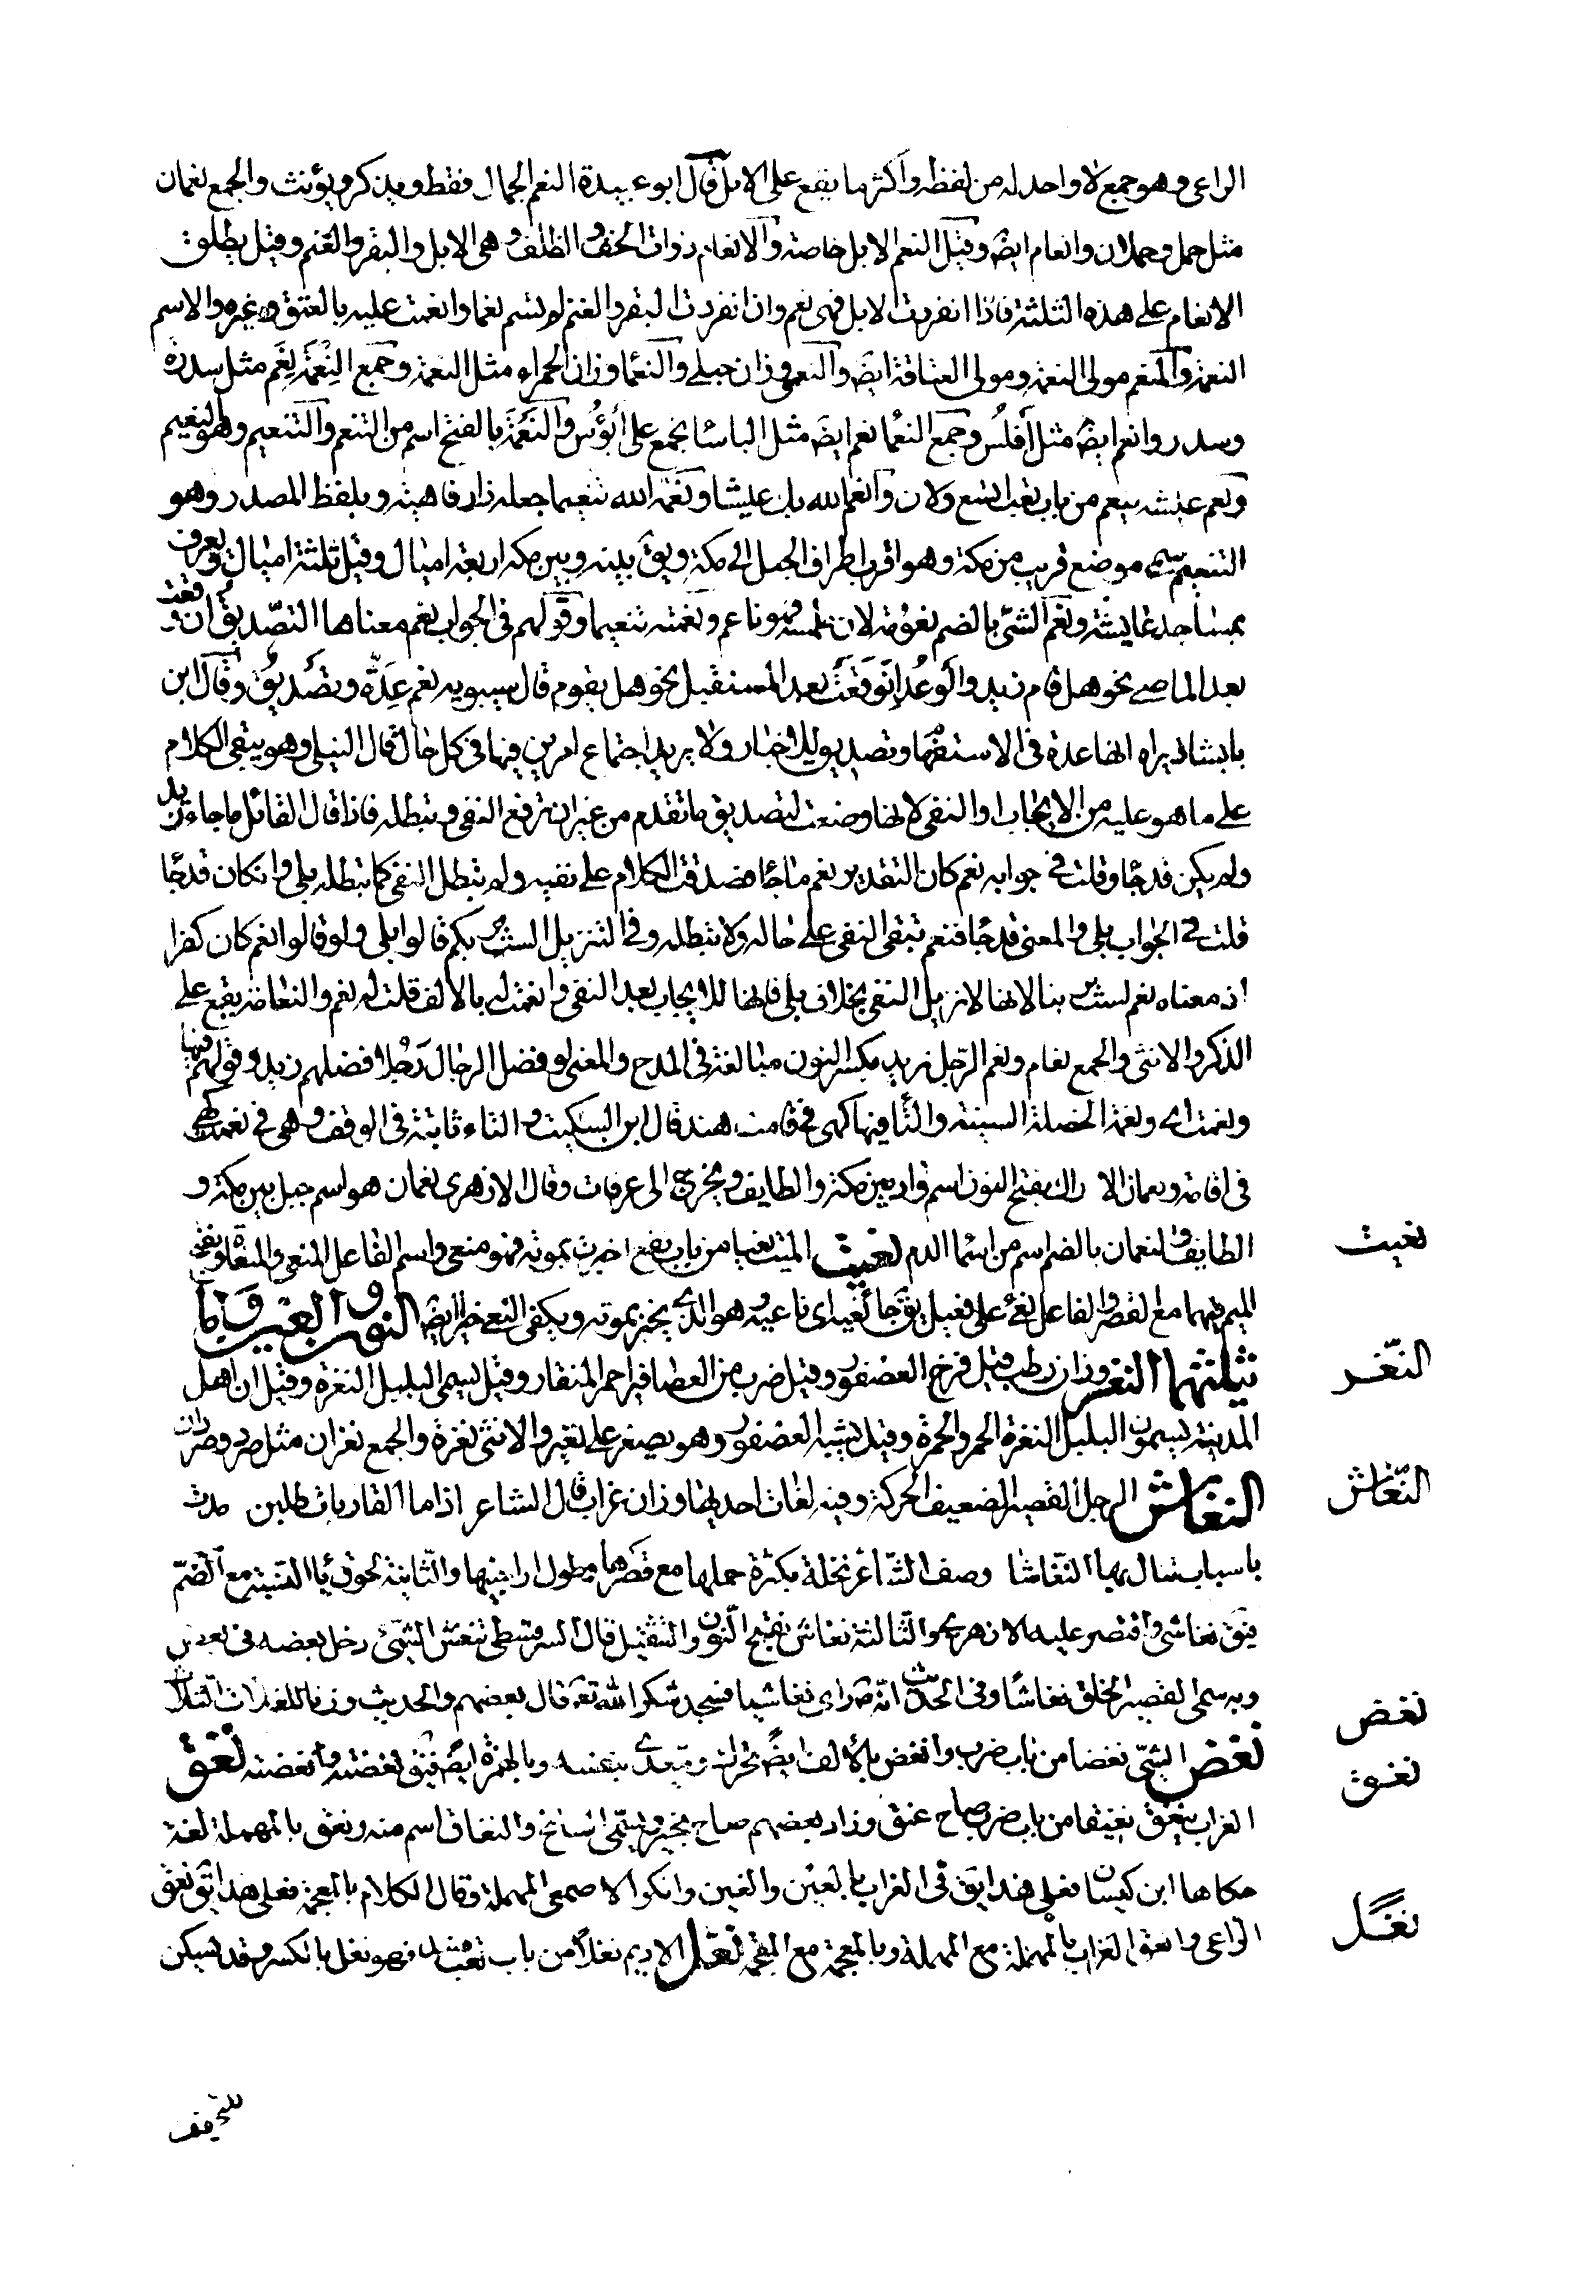 الراعى وهو جمع لا واحد له من لفظه واكثر ما يقع على الابل قال ابو عبيدة النعم الجمال فقط ويذكر ويؤنث والجمع نعمان
مثل حمل وحملان وانعام ايضً وقيل النعم الابل خاصة والانعام ذوات الخف والظلف وهى الابل والبقر والغنم وقيل يطلق
الانعام على هذه الثلثة فاذا انفردت الابل فهى نعم وان انفردت البقر والغنم لم تسم نعما وانعمت عليه بالعتق وغيره والاسم
النعمة والمنعم مولى النعمة ومولى العتاقة ايضً والنعمى وزان حبلى والنعما وزان الحمراء مثل النعمة وجمع النِعْمَة نِعَم مثل سدرة
وسدر وانعم ايضً مثل اَفلُس وجمع النعما نعم ايضً مثل الباسا يجمع على ابؤُس والنَعْمَة بالفتح اسم من التنعم والتنعيم وهو النعيم
ونعم عيشه ينعم من باب تعب اتسع ولان وانعم الله بك عيشا ونعّمه الله تنعيما جعله ذا رفاهية وبلفظ المصدر وهو
التنعيم سمى موضع قريب من مكة وهو اقرب اطراف الحل الى مكة ويقَ بينه وبين مكة اربعة اميال وقيل ثلثة اميال ويعرف
بمساجد عايشة ونعم الشئ بالضم نعومة لان ملمسه فهو ناعم ونعمته تنعيما وقولهم فى الجواب نعم معناها التصديق ان وقعت
بعد الماضى نحو هل قام زيد والوَعْد ان وَقَعَتْ بعد المستقبل نحو هل يقوم قال سيبويه نعم عِدَةٌ وتصديقٌ وقال ابن
بابشاذ يراه انها عدة فى الاستفهام وتصديق للاخبار ولا يريد اجتماع امرين فيها فى كل حال قال النيلى وهو يبقى الكلام
على ما هو عليه من الايجاب او النفى لانها وضعت لتصديق ما تقدم من غير ان ترفع النفى وتبطله فاذا قال القائل ما جاء زيد
ولم يكن قد جا وقلت فى جوابه نعم كان التقدير نعم ما جا فصدقت الكلام على نفيه ولم تبطل النفى كما تبطله بلى وان كان قد جا
قلت فى الجواب بلى والمعنى قد جا فنعم تبقى النفى على حاله ولا تبطله وفى التنزيل الست بربكم قالوا بلى ولو قالوا نعم كان كفرا
اذ معناه نعم لست بربنا لانها لا تزيل النفى بخلاف بلى فانها للايجاب بعد النفى وانعمت له بالالف قلت له نعم والنعامة يقع على
الذكر والانثى والجمع نعام ونعم الرّجل زيد بكسر النون مبالغة فى المدح والمعنى لو فضل الرجال رَجُلا فضلهم زيد وقولهم فبها
ونعمت اى ونعمة الخصلة السنة والتّا فيها كهى فى قامت هند قال ابن السكيت والتاء ثابتة فى الوقف وهى فى نعمت كهى
فى قامت ونعمان الاراك بفتح النون اسم واد بين مكة والطايف ويخرج الى عرفات وقال الازهرى نعمان هو اسم جبل بين مكة و
الطايف والنعمان بالضم اسم من اسما الدم نعيت الميت نعيا من باب نفع اخبرت بموته فهو منعى واسم الفاعل المنعى والمنعاة بفتح
الميم فيهما مع القصر والفاعل نعىّ على فعيل يقَ جا نعيه اى ناعيه وهو الذى يخبر بموته ويكفى النعى خبرا ايضً النون والغين وما
يثلثهما النغر وزان رطب قيل فرخ العصفور وقيل ضرب من العصافير احمر المنقار وقيل يسمى البلبل النغرة وقيل ان اهل
المدينة يسمون البلبل النغرة الحمر والحمرة وقيل يشبه العصفور وهو يصغر على نغير والانثى نغرة والجمع نغران مثل صرد وصردان
النغاش الرجل القصير الضعيف الحركة وفيه لغات احديها وزان غراب قال الشاعر اذا ما القاريات طلبن مدت
باسباب تنال بها النّغاشا وصف الشّاعر نخلة بكثرة حملها مع قصرها وطول اراجيها والثّانية لحوق يا النسبة مع الضّم
فيقَ نغاشى واقتصر عليه الازهرى والثّالثة نغاش بفتح النّون والتثقيل قال السرقسطى تنغش الشئ دخل بعضه فى بعض
وبه سمى القصير الخلق نغاشا وفى الحديث انه صَ راى نغاشيا فسجد شكرا لله تعَ قال بعضهم والحديث وزنا للغات الثلاث
نغض الشئ نغضا من باب ضرب وانغض بالالف ايضً تحرك ويتعدى بنفسه وبالهمزة ايضً فيقَ نغضته وانغضته نغق
الغراب ينغق نغيقا من باب ضرب صاح عنق وزاد بعضهم صاح بخير ويسمى السانح والنغاق اسم منه ونعق بالمهملة لغة
حكاها ابن كيسان فعلى هذا يقَ فى الغراب بالعين والغين وانكر الاصمعى المهملة وقال الكلام بالمعجمة فعلى هذا يقَ نعق
الراعى ونعق الغراب بالمهملة مع المهملة وبالمعجمة مع المعجمة نغل الاديم نغلا من باب تعب فسد فهو نغل بالكسر وقد يسكن
للتخفيف
نعيت
النّغر
النّغاش
نغض
نغق
نغل